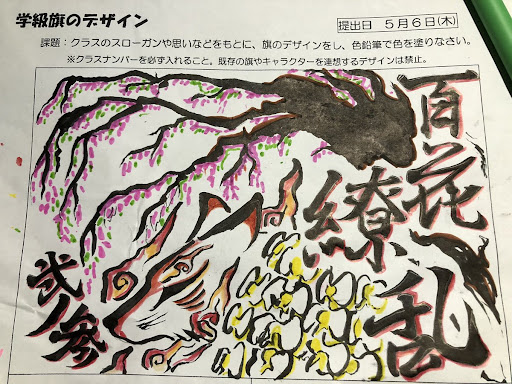 学級旗のデザイン
提出日 5月6日(木)
課題:クラスのスローガンや思いなどをもとに、旗のデザインをし、色鉛筆で色を塗りなさい。
※クラスナンバーを必ず入れること。既存の旗やキャラクターを連想するデザインは禁止。
百花
繚乱
弐ノ参